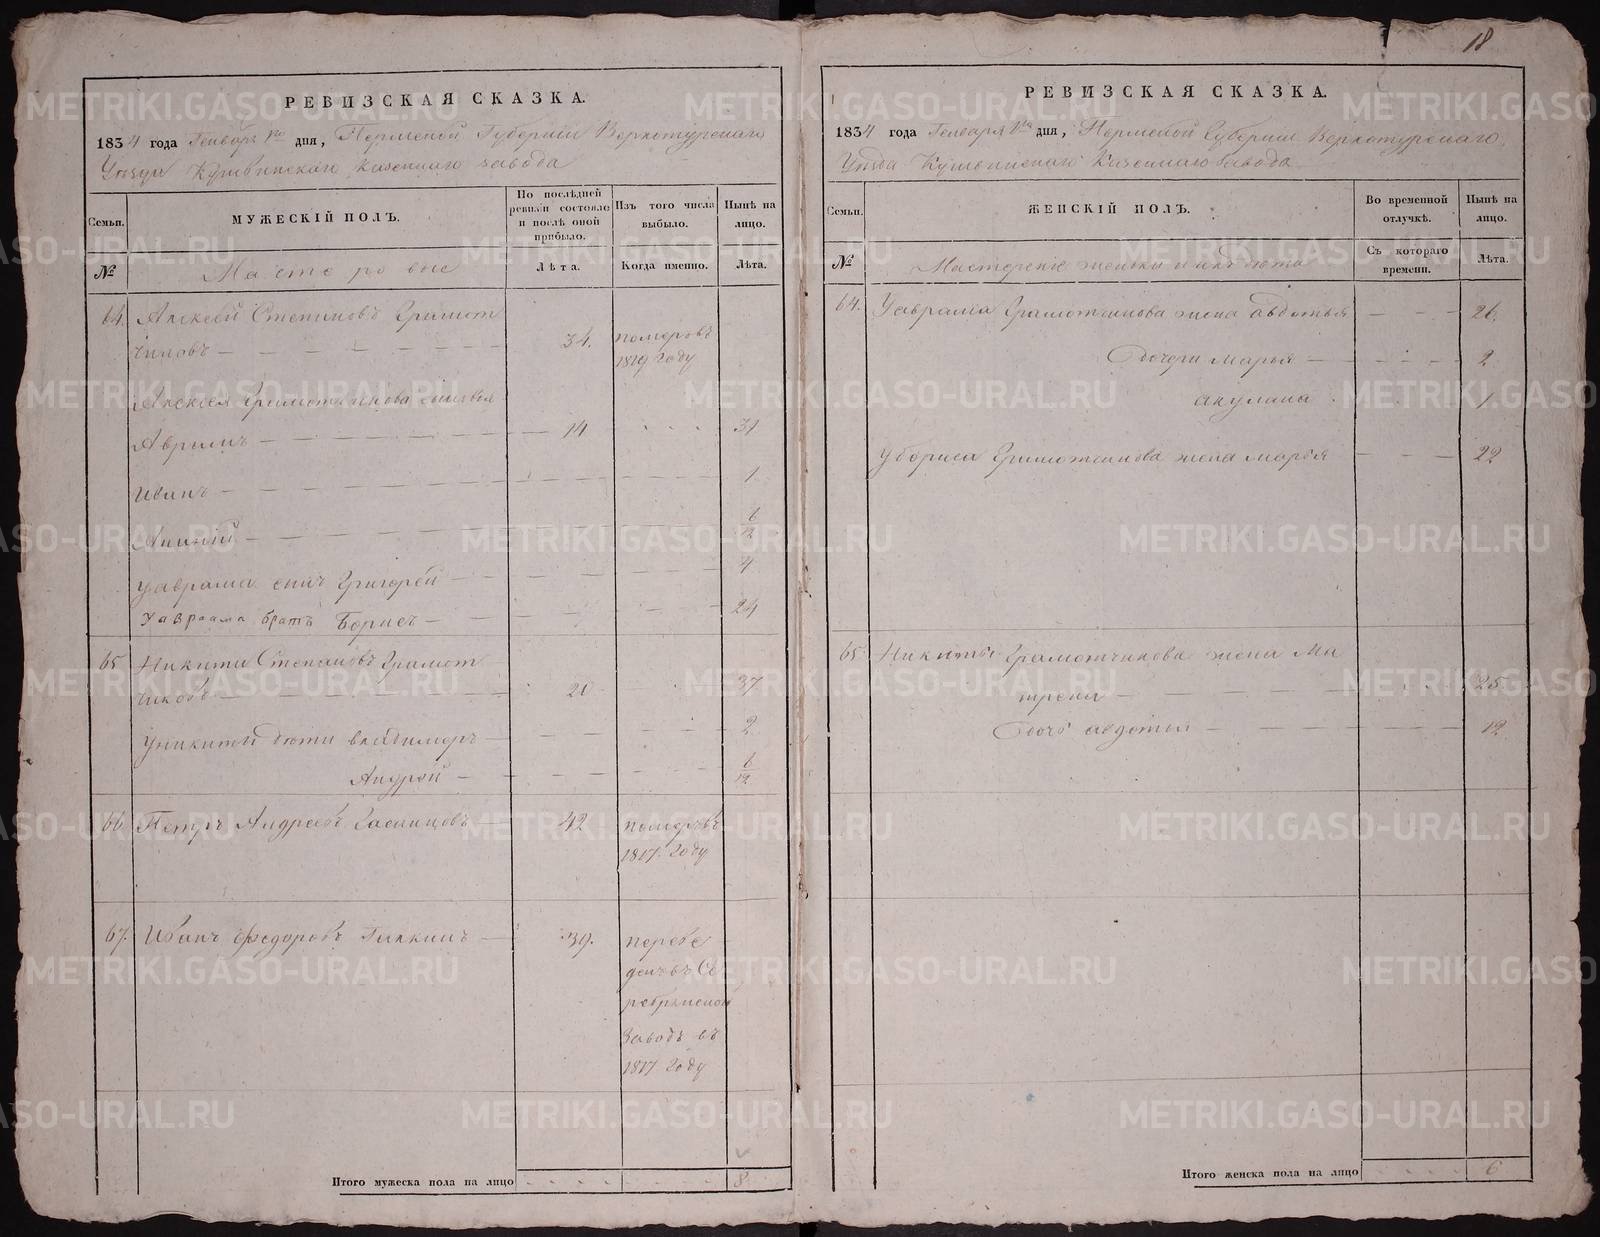 18
РЕВИЗСКАЯ СКАЗКА.
1834 года Генваря 1го дня, Пермской Губернии Верхотурскаго
Уѣзда Кушвинскаго казеннаго завода
Семьи.
МУЖЕСКІЙ ПОЛЪ.
По послѣдней ревизіи состояло и послѣ оной прибыло.
Изъ того числа выбыло.
Нынѣ на лицо.
№
Мастеровые
Лѣта.
Когда именно.
Лѣта.
64. Алексѣй Степановъ Грамот
чиковъ 34. померъ въ
1819 году
Алексея Грамотчикова сыновья
Аврамъ 14 31
Иванъ 1
Ананий 6/12
У аврама сынъ Григорей 4
У авраама братъ Борисъ 24
65 Никита Степановъ Грамот
чиковъ 20 37
У никиты дѣти владимеръ 2
Андрей 6/12
66 Петръ Андреевъ 42 померъ въ
1817 году
67. Иванъ Федоровъ 39. переве
денъ въ Се
ребрянской
заводъ въ
1817 году
Итого мужеска пола на лицо 8
РЕВИЗСКАЯ СКАЗКА.
1834 года Генваря 1го дня, Пермской Губернии Верхотурскаго
Уѣзда Кушвинскаго Казеннаго Завода
Семьи.
ЖЕНСКІЙ ПОЛЪ.
Во временной отлучкѣ.
Нынѣ на лицо.
№
Мастерские женки и ихъ дѣти
Съ котораго времени.
Лѣта.
64. У аврама Грамотчикова жена авдотья 26.
Дочери марья 2
акулина 1
У бориса Грамотчикова жена марья 22
65 Никиты Грамотчикова жена Ма
трена 25
Дочь авдотья 12
Итого женска пола на лицо 6
METRIKI.GASO-URAL.RU